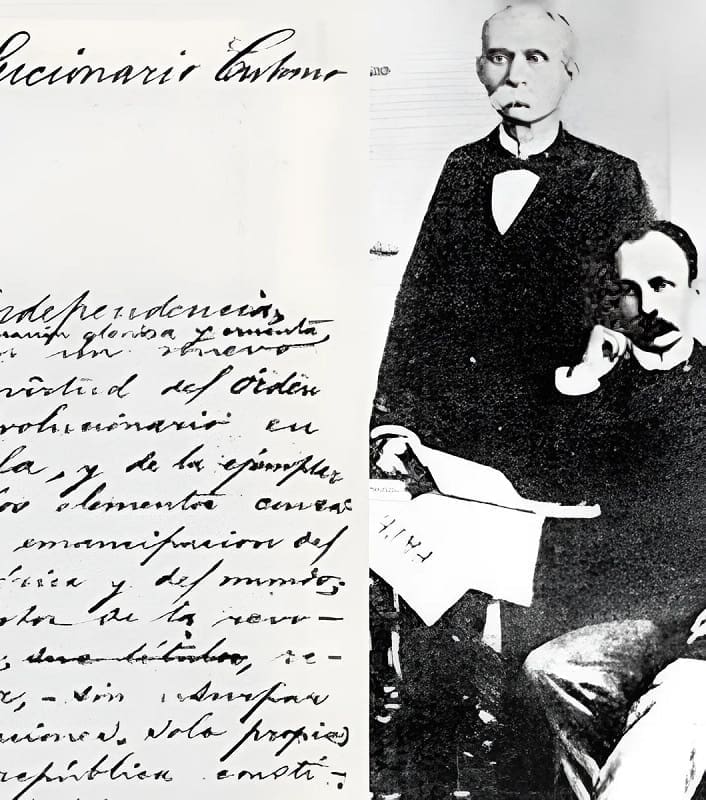 ucionario Cubano
independencia,
gloriosa y cruenta,
un nuevo
virtud del orden
volucionario en
la, y de la ejemplar
los elementos consa
emancipacion del
érica y del mundo;
de la revo-
re-
- sin usurpar
ciones, solo propias
república consti-